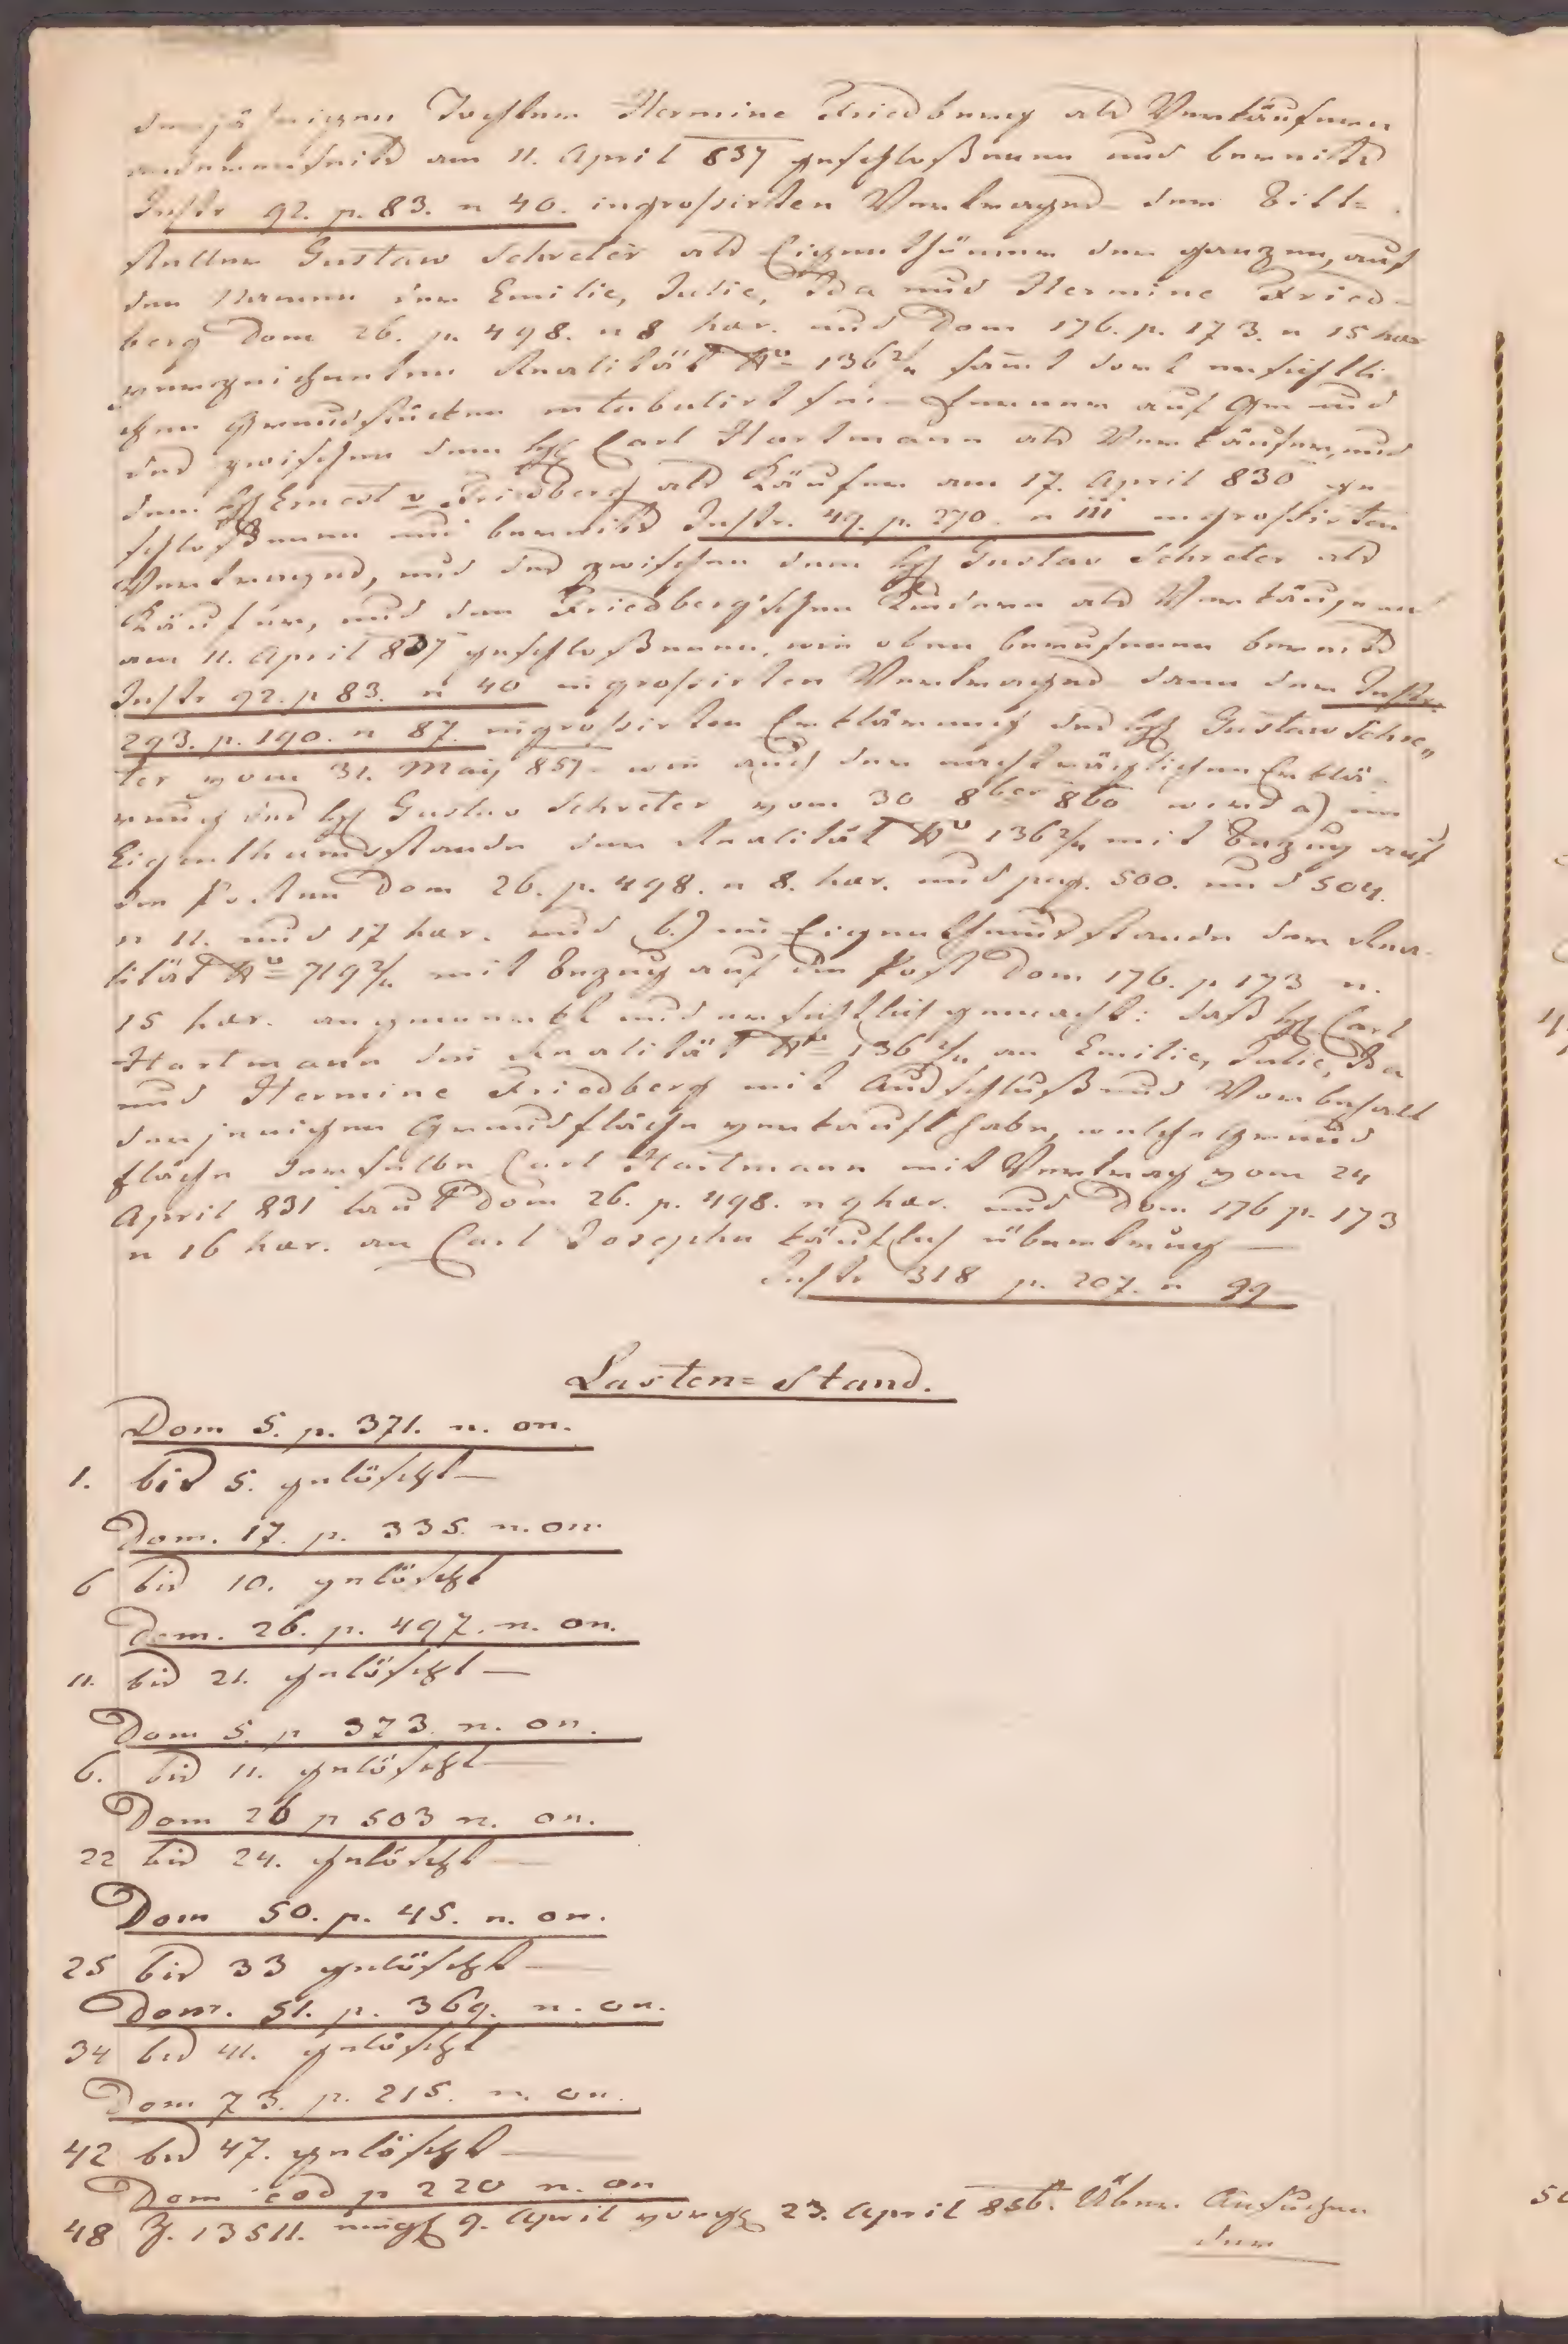 derjährigen Tochter Hermine Friedberg als Verkäufern
andererseits am 11. April 837 geschloßenen und bereits
Instr 92. p. 83. n 40. ingrossirten Vertrages der Bitt=
steller Gustaw Schreter als Eigenthümer der ganzen, auf
den Namen der Emilie, Julie, Ida und Hermine Fried-
berg Dom 26. p. 498. n 8 hær. und Dom 176. p. 173. n 15 hær
verzeichneten Realität No 136 2/4 samt dort ersichtli
chen Grundstücken intabulirt sei – ferner auf Grund
des zwischen dem H. Carl Hartmann als Verkäufer, und
dem H Ernest v Friedberg als Käufer am 17. April 830 ge
schloßenen und bereits Instr. 49. p. 270. n 111 ingrossirten
Vertrages, und des zwischen dem H Gustav Schreter als
Käufer, und den Friedberg'schen Kindern als Verkäufern
am 11. April 837 geschloßenen, wie oben berufenen bereits
Instr 92. p 83. n 40 ingrossirten Vertrages dann der Instr.
293. p. 190. n 87. ingrossirten Erklärung des H Gustaw Schre„
ter vom 31. May 857 – wie auch der nachträglichen Erklä-
rung des H Gustav Schreter vom 30 8ber 860 wird a) im
Eigenthumsstande der Realität No 136 2/4 mit Bezug auf
die Posten Dom 26. p. 498. n 8. hær. und pag. 500. und 504.
n 11. und 17 hær. und b.) im Eigenthumsstande der Rea-
lität No 719 2/4 mit Bezug auf die Post Dom 176. p 173 n.
15 hær. angemerkt und ersichtlich gemacht: daß H Carl
Hartmann die Realität No 136 2/4 an Emilie, Julie, Ida
und Hermine Friedberg mit Ausschluß und Vorbehalt
derjenigen Grundfläche verkauft habe, welche Grund
fläche derselbe Carl Hartmann mit Vertrag vom 24
April 831 laut Dom 26. p. 498. n 9 hær. und Dom 176 p. 173
n 16 hær. an Carl Josephu käuflich übertrug —
Instr 318 p. 207. n 99
Lasten=Stand.
Dom 5. p. 371. n. on.
1. bis 5. gelöscht —
Dom. 17. p. 335. n. on.
6 bis 10. gelöscht
Dom. 26. p. 497. n. on.
11. bis 21. gelöscht —
Dom 5. p 373. n. on.
6. bis 11. gelöscht —
Dom 26 p 503 n. on.
22 bis 24. gelöscht —
Dom 50. p. 45. n. on.
25 bis 33 gelöscht —
Dom. 51. p. 369. n. on.
34 bis 41. gelöscht
Dom 73. p. 215. n. on.
42 bis 47. gelöscht —
Dom eod p 220 n. on
48 Z. 13511. 9. April 23. April 856. Über Ansuchen
der